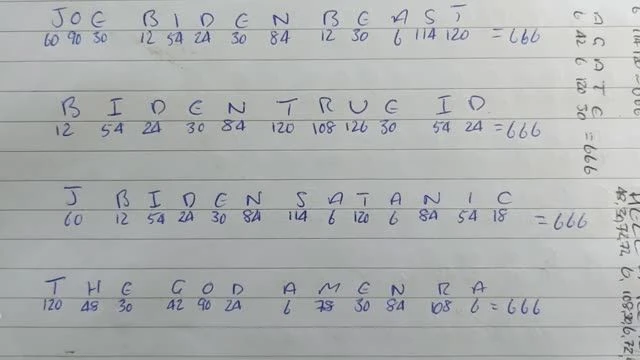 J O E B I D E N B E A S T
60 90 30 12 54 24 30 84 12 30 6 114 120 = 666
B I D E N T R U E I D
12 54 24 30 84 120 108 126 30 54 24 = 666
J B I D E N S A T A N I C
60 12 54 24 30 84 114 6 120 6 84 54 18 = 666
T H E G O D A M E N R A
120 48 30 42 90 24 6 78 30 84 108 6 = 666
6 42 6 120 30 = 666